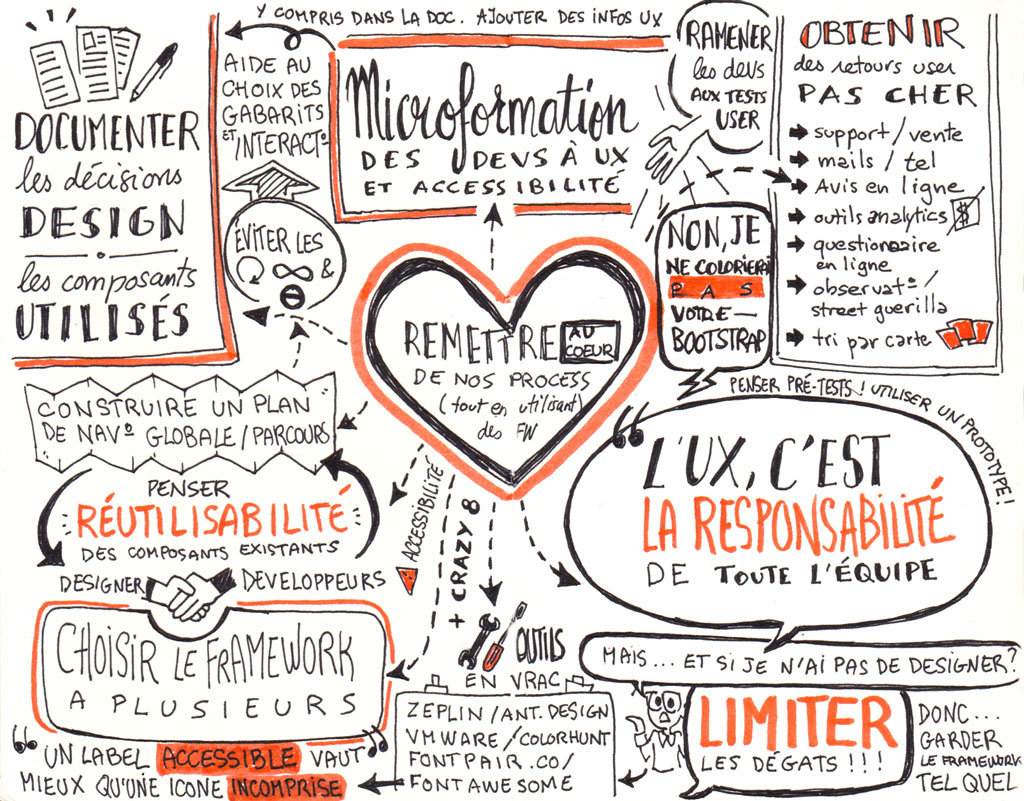 Y COMPRIS DANS LA DOC. AJOUTER DES INFOS UX
DOCUMENTER
les décisions
DESIGN
les composants
UTILISÉS
AIDE AU
CHOIX DES
GABARITS
ET INTERACT°
Microformation
DES DEVS À UX
ET ACCESSIBILITÉ
RAMENER
les devs
AUX TESTS
USER
OBTENIR
des retours user
PAS CHER
support/vente
mails / tel
Avis en ligne
outils analytics $
questionnaire
en ligne
observat° /
street guerilla
tri par carte
ÉVITER LES
&
NON, JE
NE COLORIERAI
PAS
VOTRE
BOOTSTRAP
REMETTRE AU
COEUR
DE NOS PROCESS
(tout en utilisant)
des FW
CONSTRUIRE UN PLAN
DE NAV° GLOBALE/PARCOURS
PENSER
RÉUTILISABILITÉ
DES COMPOSANTS EXISTANTS
DESIGNER DEVELOPPEURS
CHOISIR LE FRAMEWORK
A PLUSIEURS
" UN LABEL ACCESSIBLE VAUT "
MIEUX QU'UNE ICONE INCOMPRISE
ACCESSIBILITÉ
+ CRAZY 8
OUTILS
EN VRAC
ZEPLIN/ANT.DESIGN
VMWARE/COLORHUNT
FONTPAIR.CO/
FONTAWESOME
PENSER PRÉ-TESTS! UTILISER UN PROTOTYPE!
" L'UX, C'EST
LA RESPONSABILITÉ
DE TOUTE L'ÉQUIPE
MAIS... ET SI JE N'AI PAS DE DESIGNER?
LIMITER
LES DÉGATS !!!
DONC...
GARDER
LE FRAMEWORK
TEL QUEL